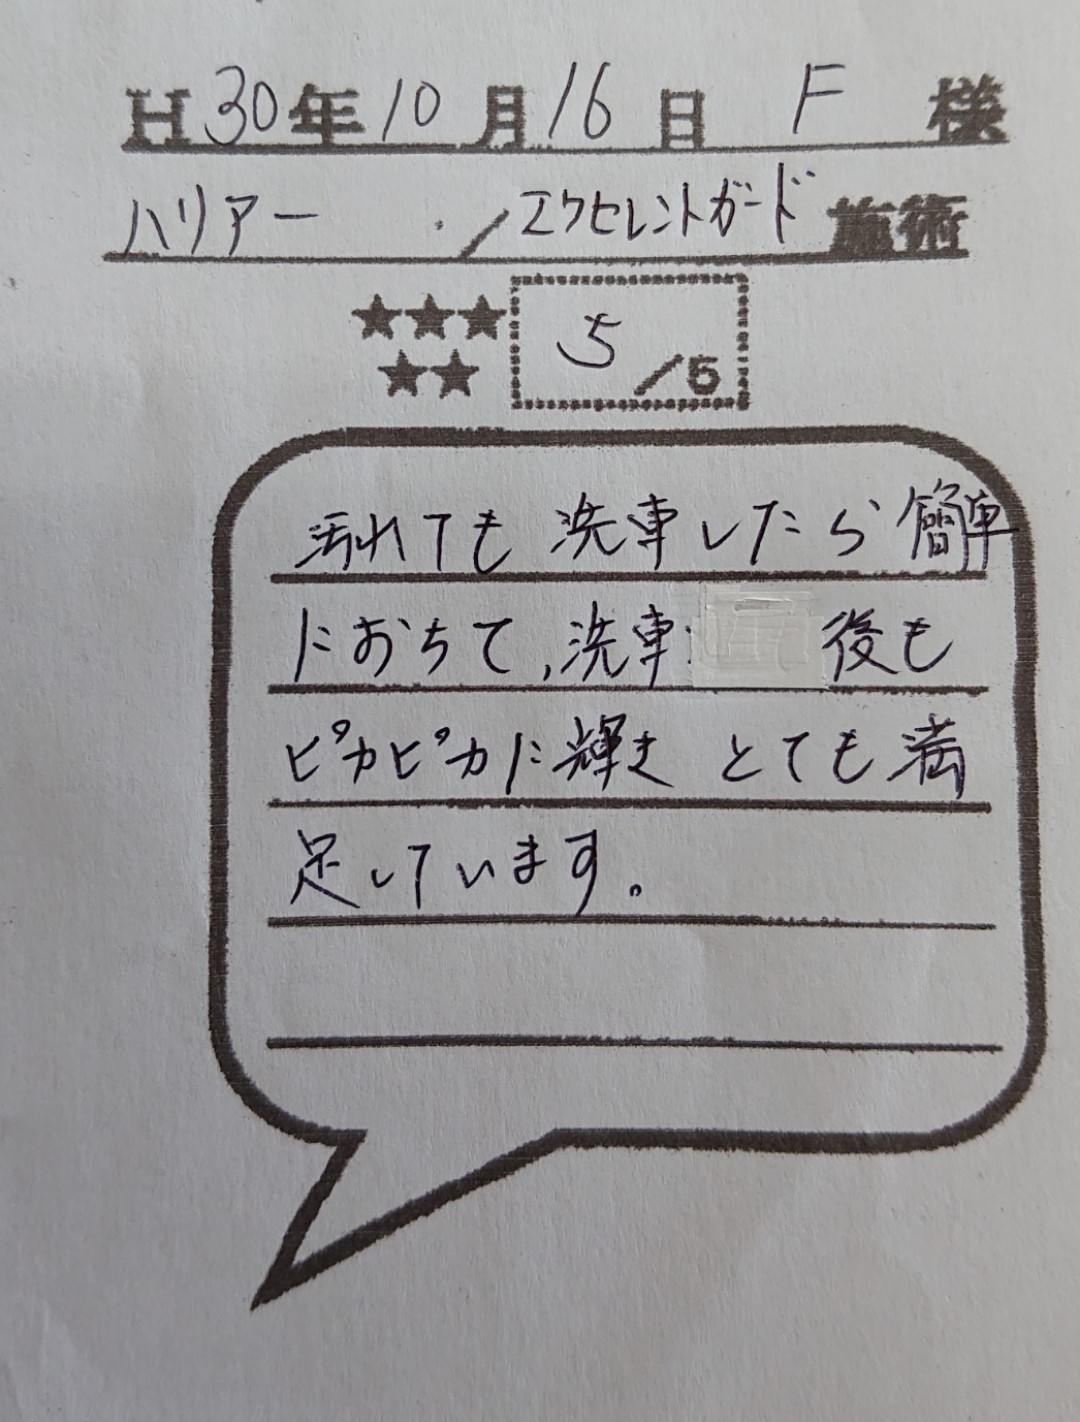 H30年10月16日 F 様
ハリアー ／エクセレントガード施術
★★★
★★
5／5
汚れても 洗車したら簡単
におちて、洗車 後も
ピカピカに輝き とても満
足しています。